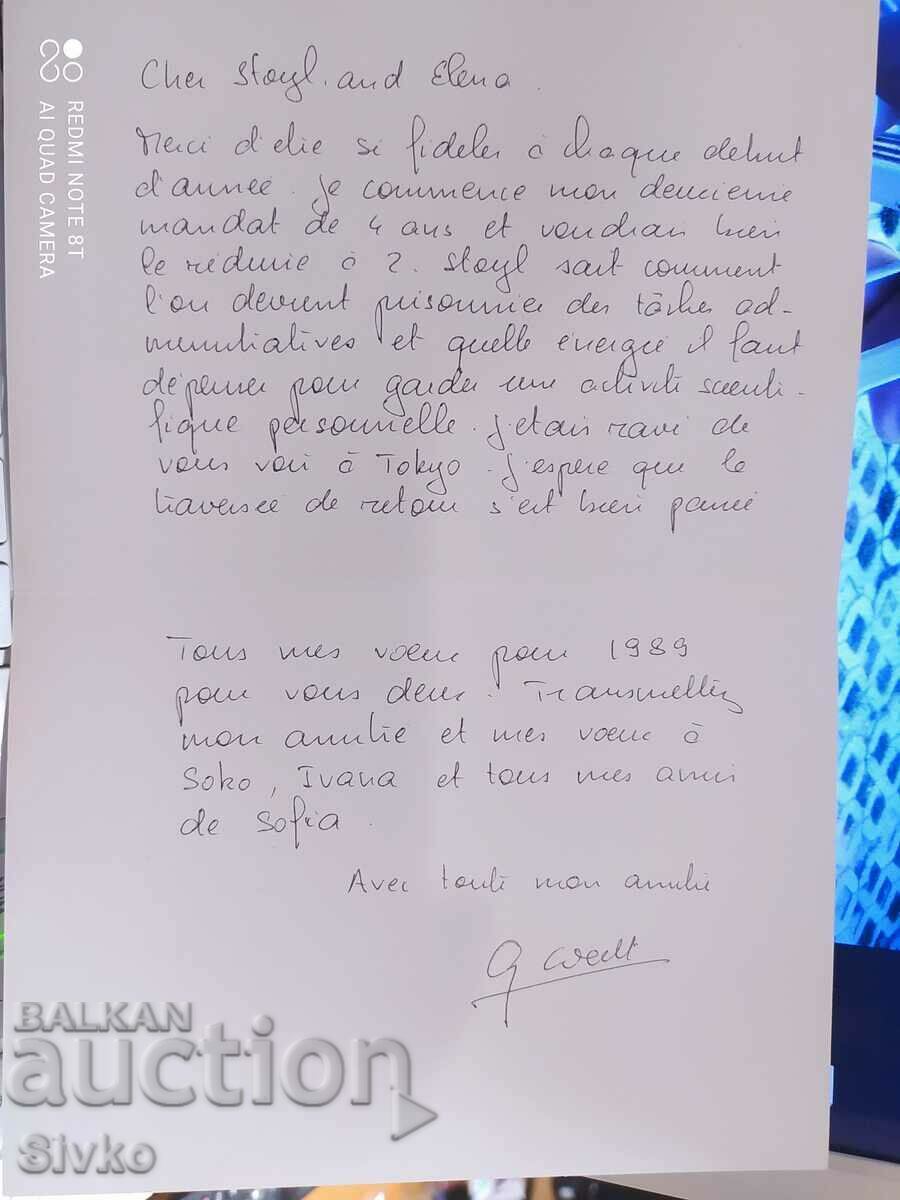 Cher Stoyl. and Elena.
Merci d'être si fideles à chaque debut
d'année. Je commence mon deuxieme
mandat de 4 ans et voudrais bien
le réduire à 2. Stoyl sait comment
l'on devient prisonnier des tâches ad-
ministratives et quelle énergie il faut
dépenser pour garder une activité scienti-
fique personnelle. J'etais ravi de
vous voir à Tokyo. J'espere que la
traversée de retour s'est bien passée
Tous mes voeux pour 1989
pour vous deux. Transmettez
mon amitié et mes voeux à
Soko, Ivana et tous mes amis
de Sofia.
Avec toute mon amitié
REDMI NOTE 8T
AI QUAD CAMERA
BALKAN
auction
Sivko